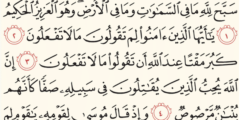 سَبَّحَ لِلَّهِ مَا فِي السَّمَٰوَٰتِ وَمَا فِي الْأَرْضِ وَهُوَ الْعَزِيزُ الْحَكِيمُ
١ يَٰٓأَيُّهَا الَّذِينَ ءَامَنُوا لِمَ تَقُولُونَ مَا لَا تَفْعَلُونَ ٢
كَبُرَ مَقْتًا عِندَ اللَّهِ أَن تَقُولُوا مَا لَا تَفْعَلُونَ ٣ إِنَّ
اللَّهَ يُحِبُّ الَّذِينَ يُقَٰتِلُونَ فِي سَبِيلِهِ صَفًّا كَأَنَّهُم
بُنْيَٰنٌ مَّرْصُوصٌ ٤ وَإِذْ قَالَ مُوسَىٰ لِقَوْمِهِ يَٰقَوْمِ لِمَ